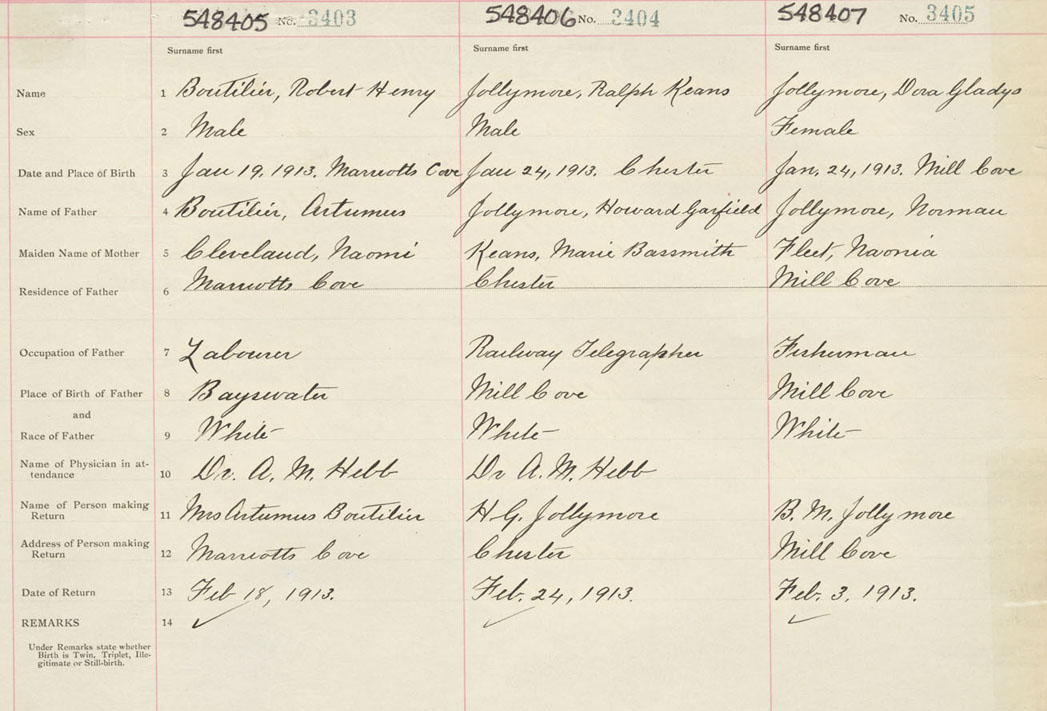 548405 No. 3403 548406 No. 3404 548407 No. 3405
Surname first Surname first Surname first
Name 1 Boutilier, Robert Henry Jollymore, Ralph Keans Jollymore, Dora Gladys
Sex 2 Male Male Female
Date and Place of Birth 3 Jan 19, 1913. Marriotts Cove Jan 24, 1913. Chester Jan. 24, 1913. Mill Cove
Name of Father 4 Boutilier, Artumus Jollymore, Howard Garfield Jollymore, Norman
Maiden Name of Mother 5 Cleveland, Naomi Keans, Marie Bassmith Fleet, Navonia
Residence of Father 6 Marriotts Cove Chester Mill Cove
Occupation of Father 7 Labourer Railway Telegrapher Fisherman
Place of Birth of Father 8 Bayswater Mill Cove Mill Cove
and
Race of Father 9 White White White
Name of Physician in at-
tendance 10 Dr. A. M. Hebb Dr A. M. Hebb
Name of Person making
Return 11 Mrs Artumus Boutilier H G. Jollymore B. M. Jollymore
Address of Person making
Return 12 Marriotts Cove Chester Mill Cove
Date of Return 13 Feb 18, 1913. Feb. 24, 1913. Feb. 3. 1913.
REMARKS 14
Under Remarks state whether
Birth is Twin, Triplet, Ille-
gitimate or Still-birth.